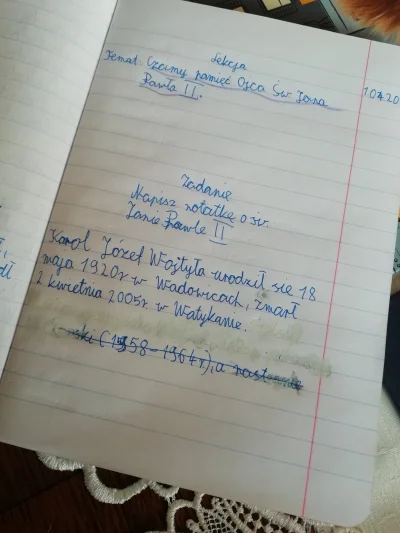 Lekcja
Temat. Czcimy pamięć Ojca Św Jana
Pawła II.
Zadanie
Napisz notatkę o św.
Janie Pawle II
Karol Józef Wojtyła urodził się 18
maja 1920r w Wadowicach, zmarł
2 kwietnia 2005r. w Watykanie.
ski (1958-1964r), a następnie